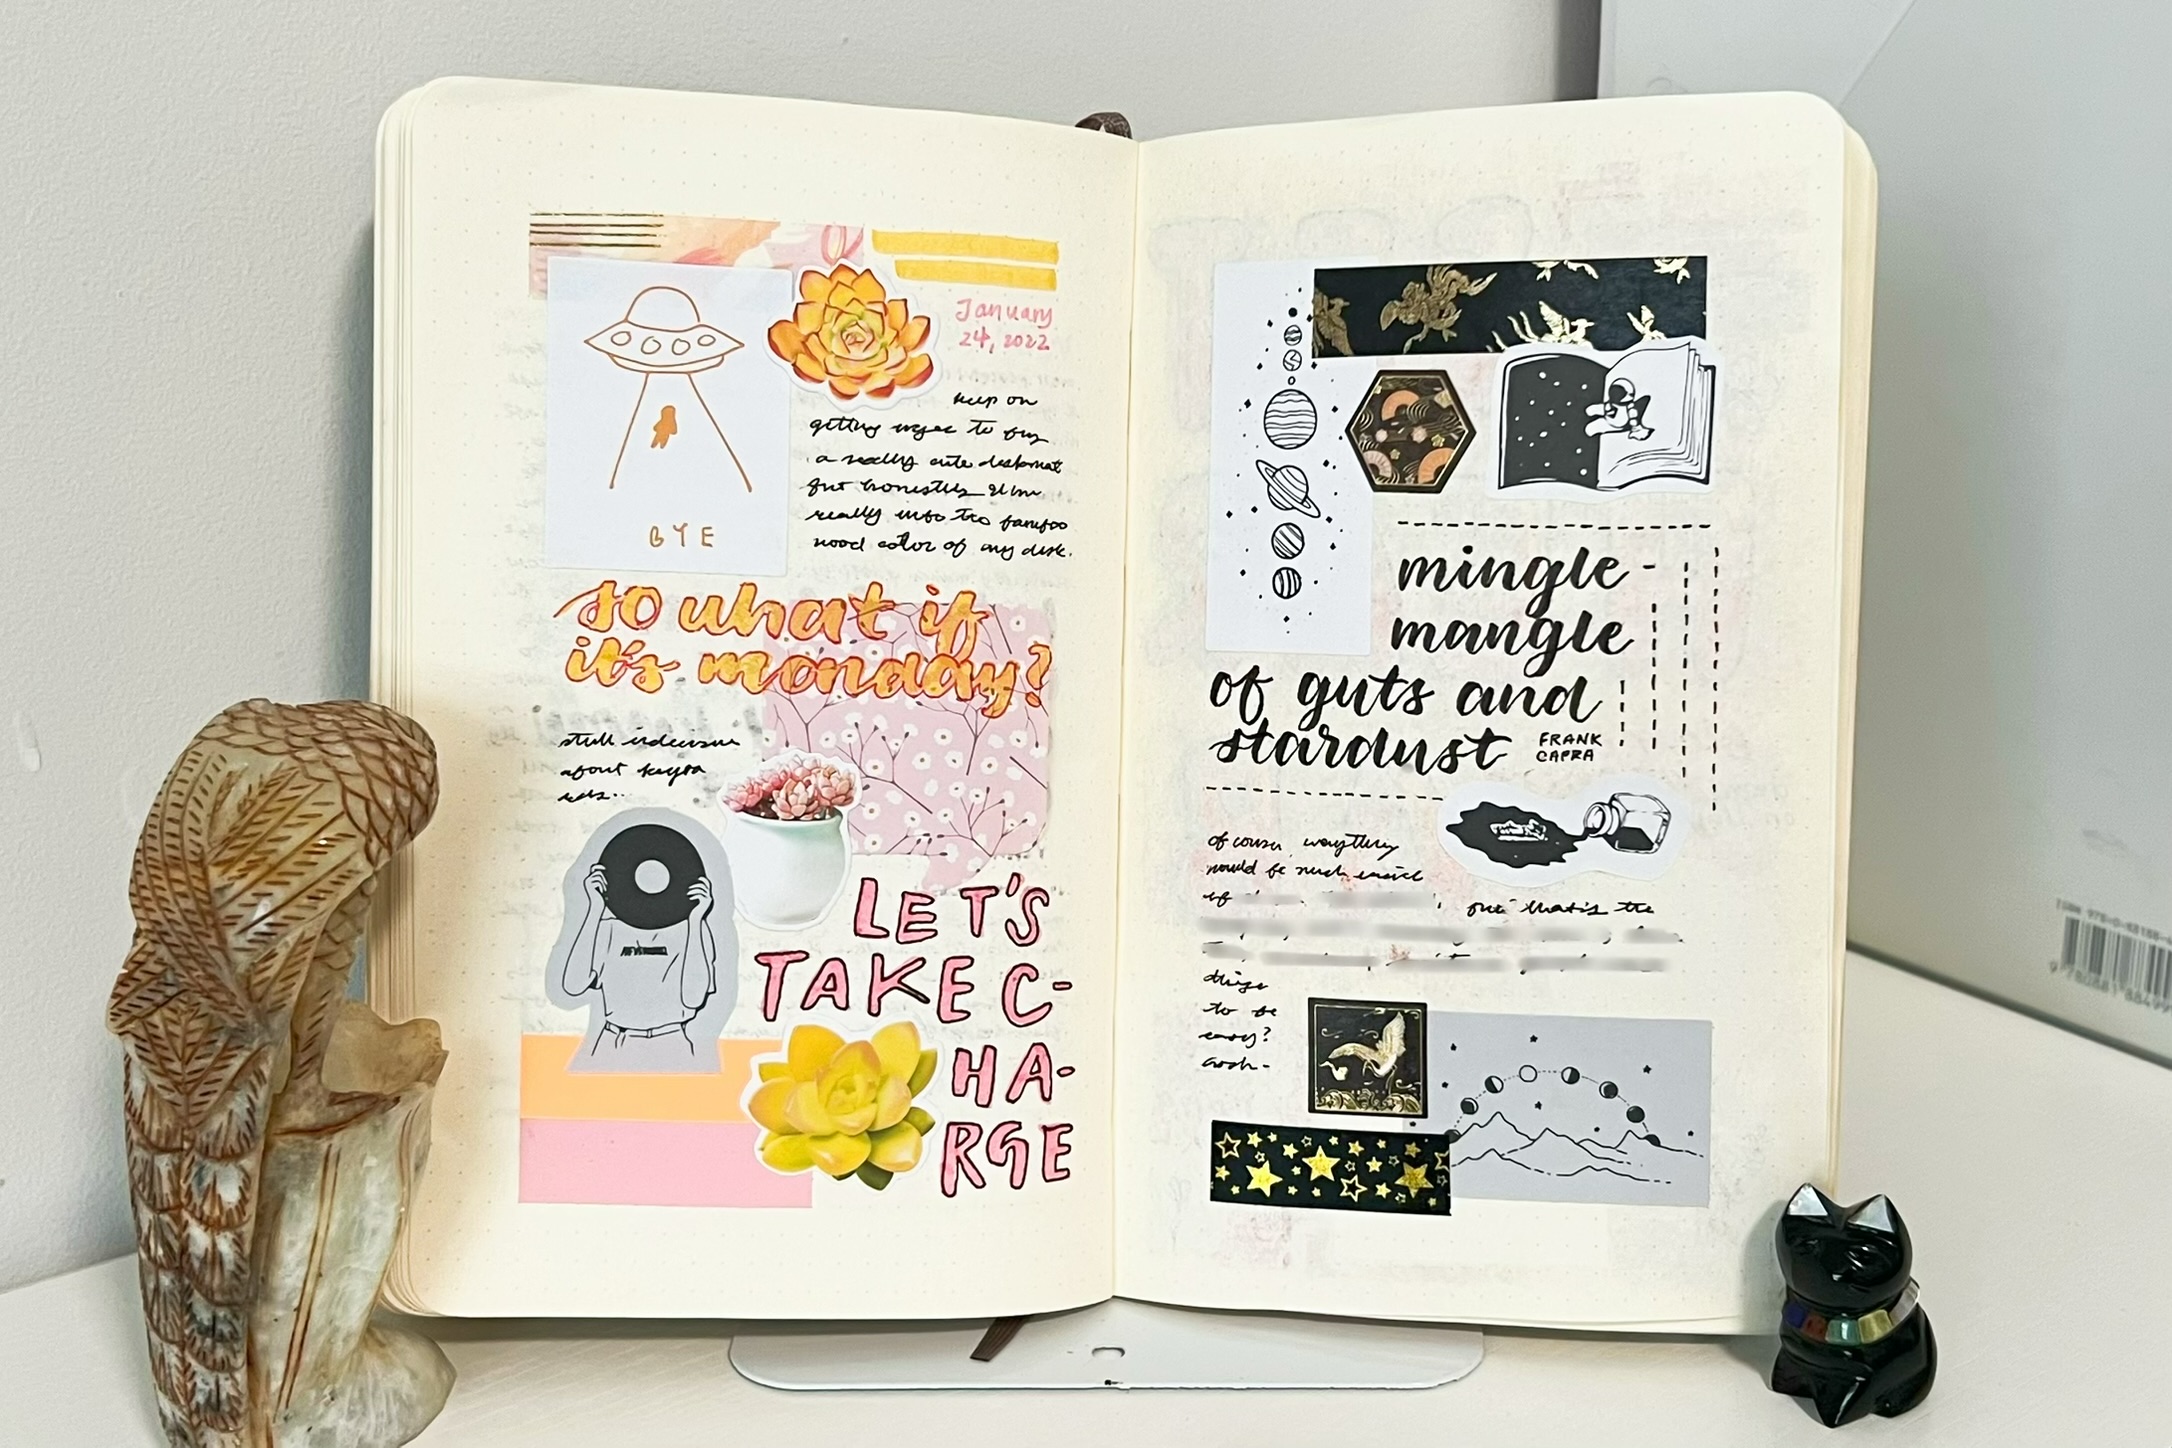 January
24, 2022
keep on
getting urges to buy
a really cute deskmat
but honestly I'm
really into the bamboo
wood color of my desk.
BYE
so what if
it's monday?
still indecisive
about
LET'S
TAKE C-
HA-
RGE
mingle-
mangle
of guts and
stardust
FRANK
CAPRA
of course, everything
would be much easier
if
, but that's the
things
to be
easy?
gosh-